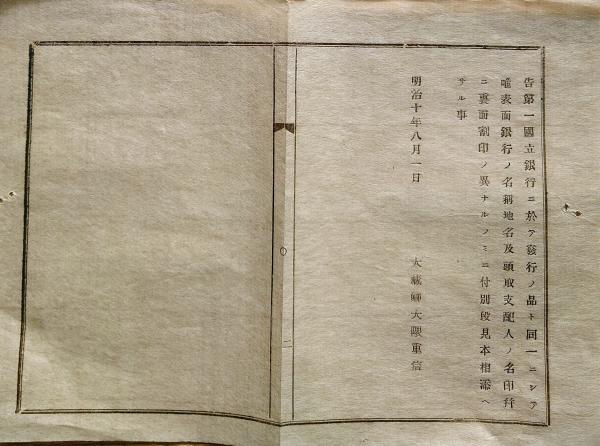 告第一國立銀行ニ於テ發行ノ品ト同一ニシテ
唯表面銀行ノ名稱地名及頭取支配人ノ名印幷
ニ裏面割印ノ異ナルノミニ付別段見本相添ヘ
サル事
明治十年八月一日
大藏卿大隈重信
二